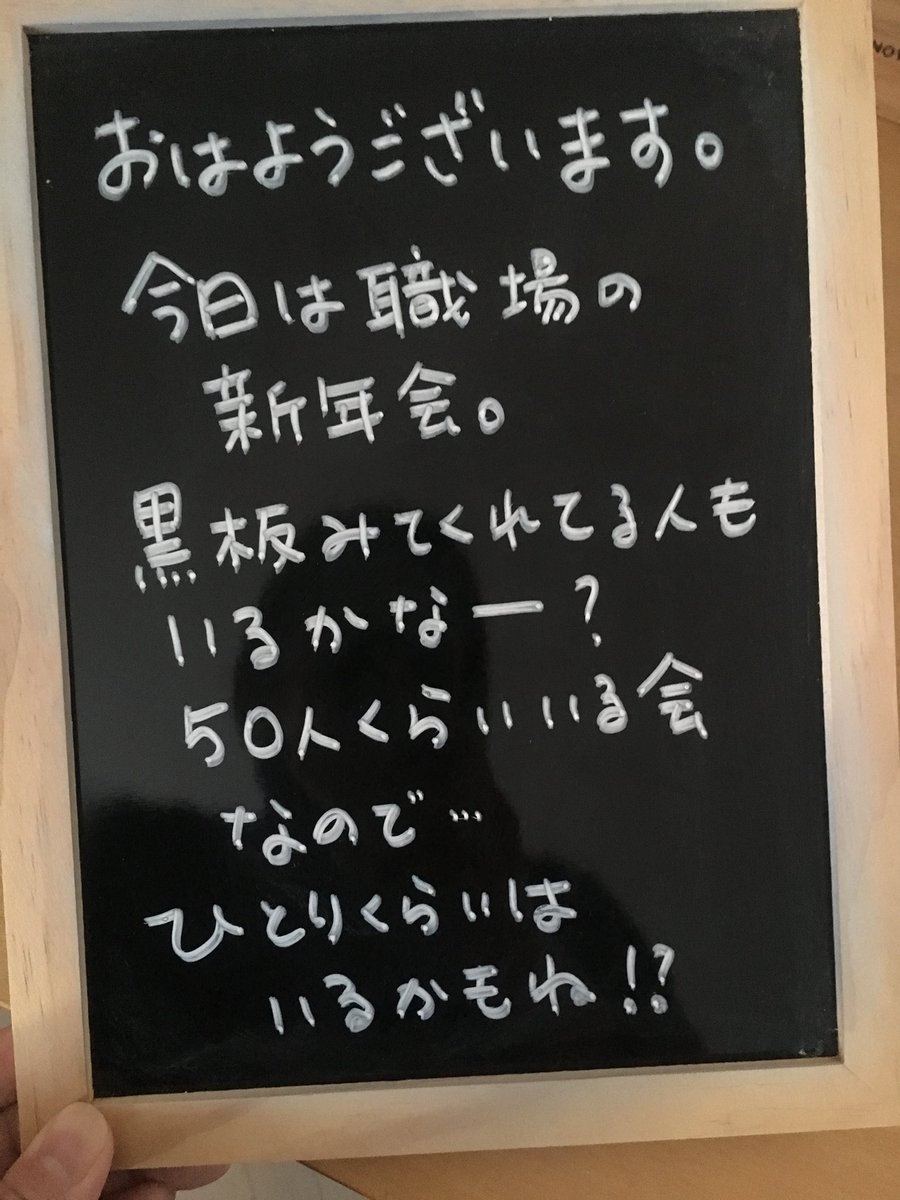 おはようございます。
今日は職場の
新年会。
黒板みてくれてる人も
いるかなー?
50人くらいいる会
なので…
ひとりくらいは
いるかもね!?